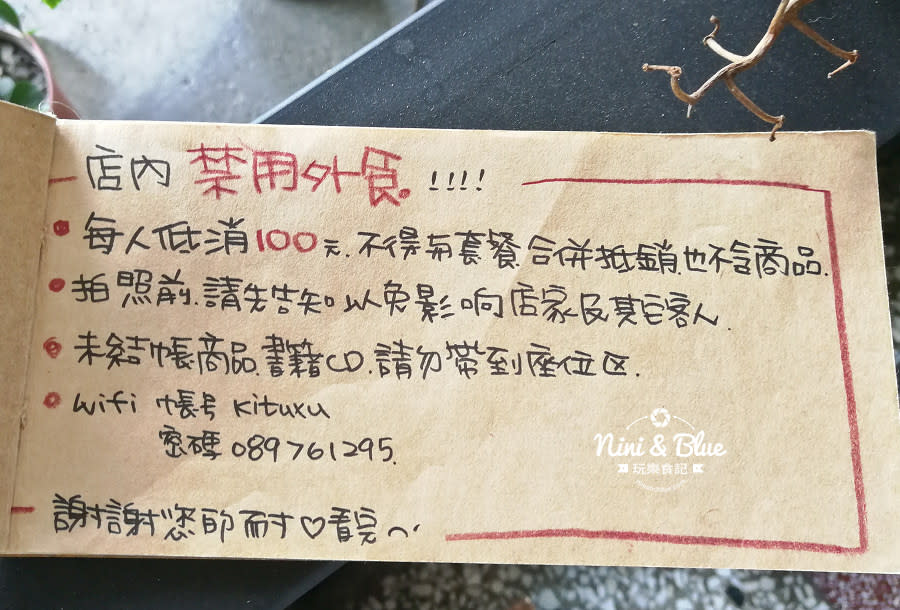 店內 禁用外食. !!!!
每人低消100元.不得有套餐合併抵銷.也不含商品.
拍照前.請先告知以免影响店家及其它客人.
未結帳商品.書籍CD.請勿帶到座位区.
wifi 帳号 kituxu
密碼 089761295.
謝謝您的耐♡看完~
Nini & Blue
玩樂食記